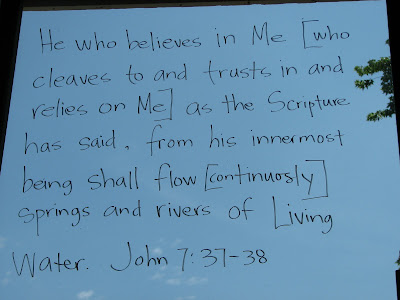 He who believes in Me [who
cleaves to and trusts in and
relies on Me] as the Scripture
has said, from his innermost
being shall flow [continuosly]
springs and rivers of Living
Water. John 7:37-38